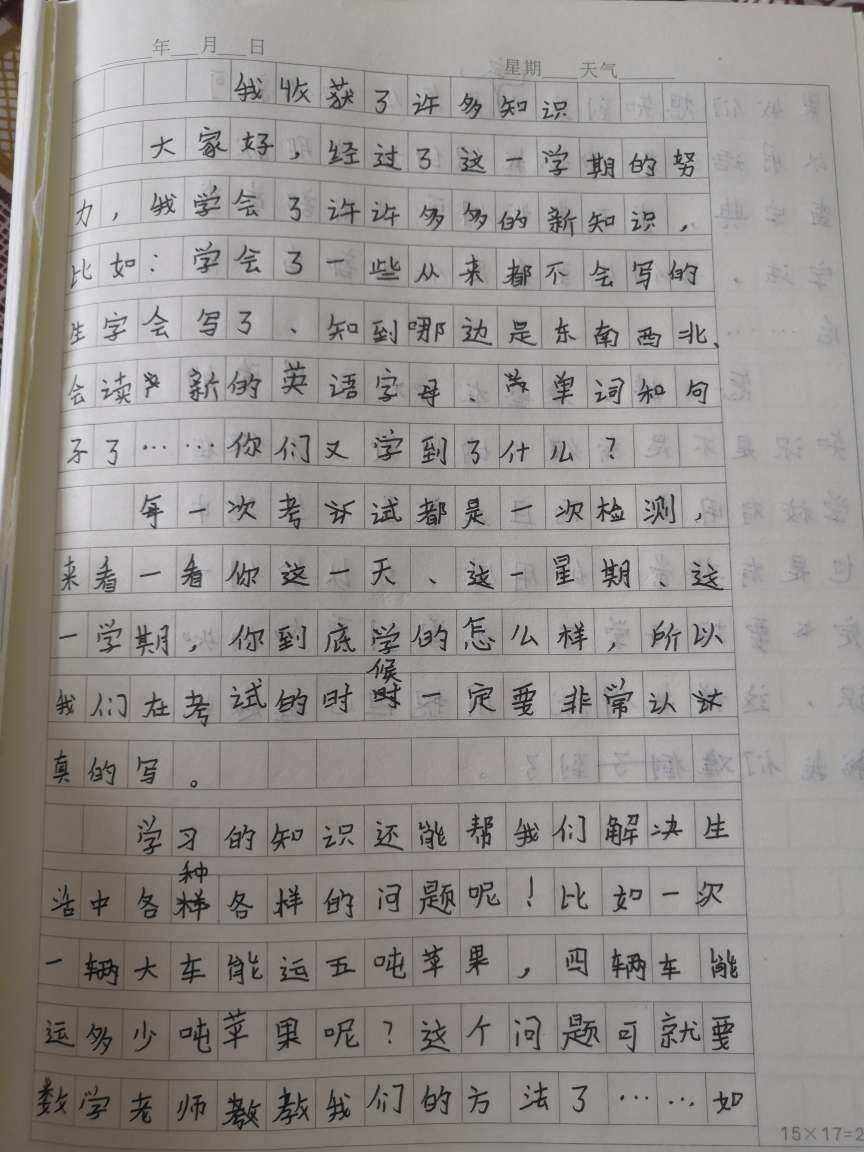 年 月 日 星期 天气
我收获了许多知识
大家好，经过了这一学期的努
力，我学会了许许多多的新知识，
比如：学会了一些从来都不会写的
生字会写了、知到哪边是东南西北、
会读新的英语字母、单词和句
子了……你们又学到了什么？
每一次考试都是一次检测，
来看一看你这一天、这一星期、这
一学期，你到底学的怎么样，所以
我们在考试的时候一定要非常认
真的写。
学习的知识还能帮我们解决生
活中各种各样的问题呢！比如一次
一辆大车能运五吨苹果，四辆车能
运多少吨苹果呢？这个问题可就要
数学老师教我们的方法了……如
15×17=2